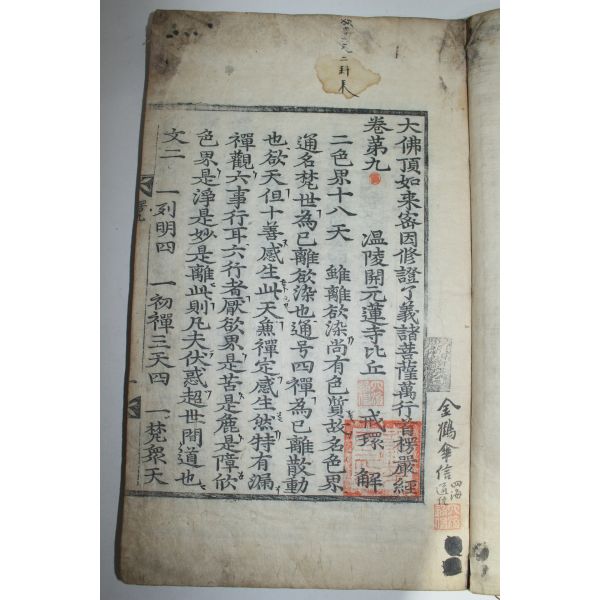 大佛頂如來密因修證了義諸菩薩萬行首楞嚴經
卷第九
温陵開元蓮寺比丘 戒環 解
二色界十八天 雖離欲染尚有色質故名色界
通名梵世為已離欲染也通号四禪為已離散動
也欲天但十善感生此天兼禪定感生然特有漏
禪觀六事行耳六行者厭欲界是苦是麁是障欣
色界是淨是妙是離此則凡夫伏惑超世間道也
文二 一列明四 一初禪三天四 一梵衆天